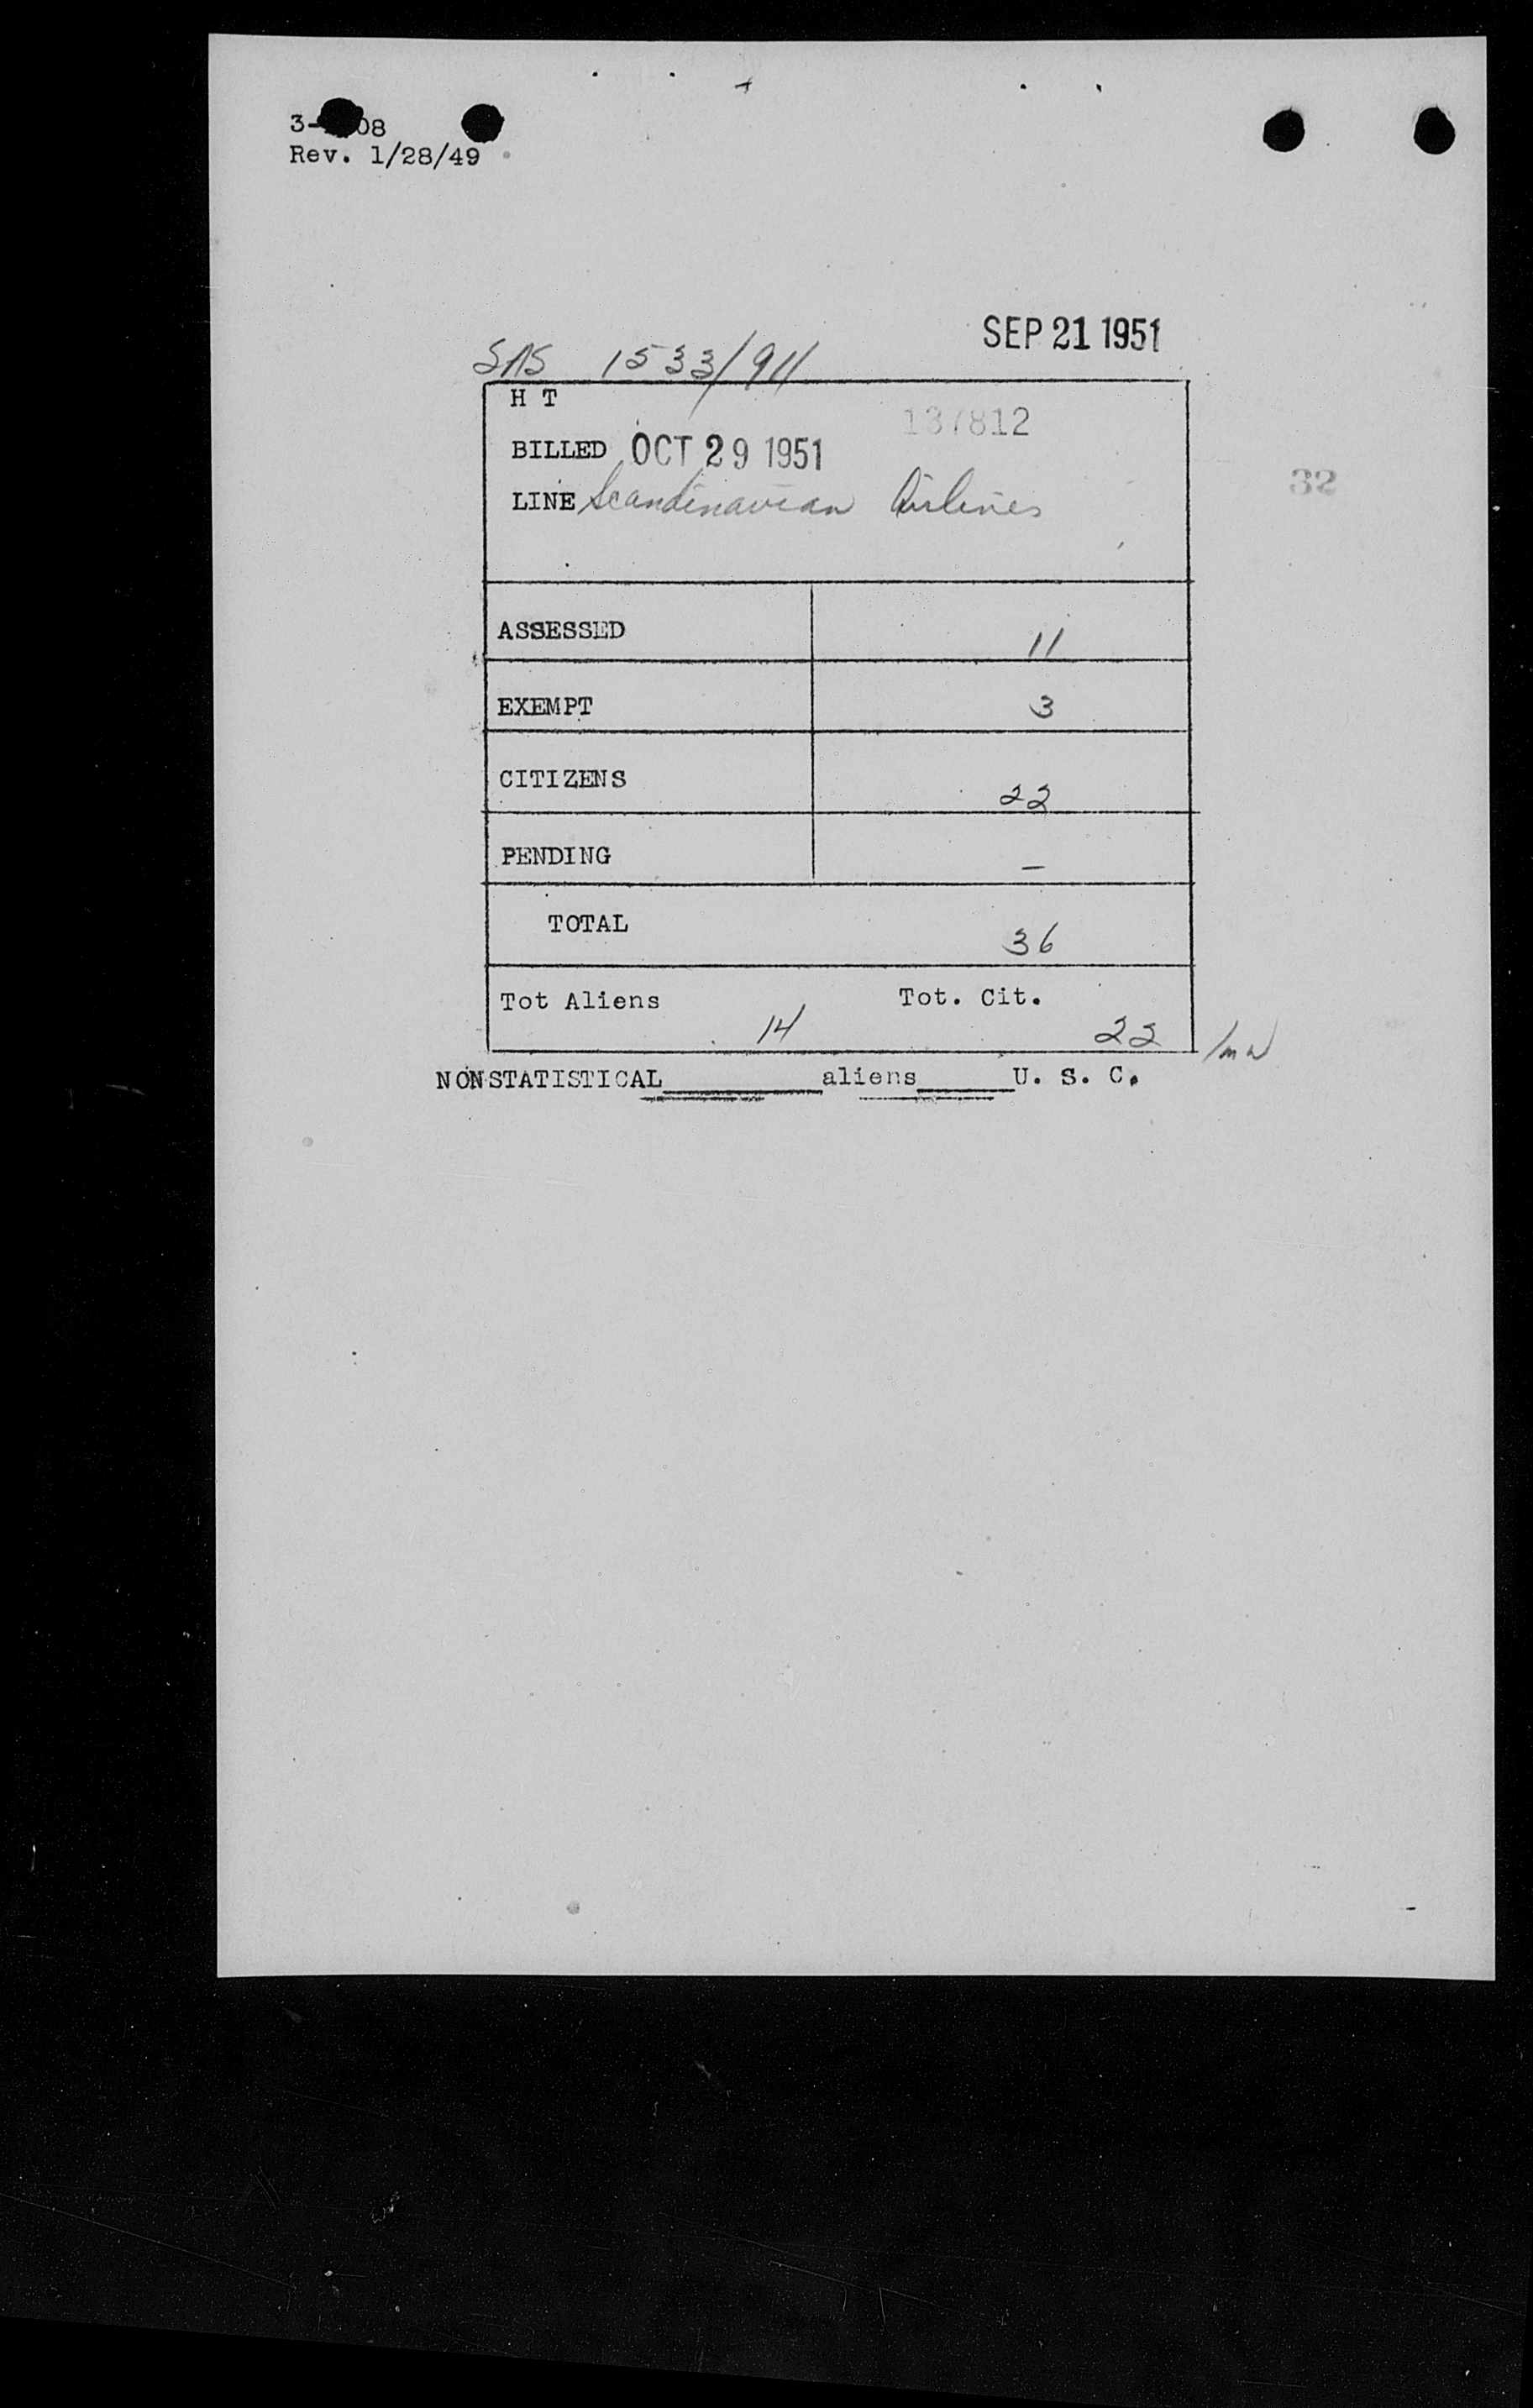 Rev. 1/28/49
SEP 21 1951
SAS 1533/911
H T
137812
BILLED OCT 29 1951
32
LINE Scandinavian Airlines
ASSESSED 11
EXEMPT 3
CITIZENS 22
PENDING –
TOTAL 36
Tot Aliens 14 Tot. Cit. 22
NONSTATISTICAL________aliens_____U. S. C.